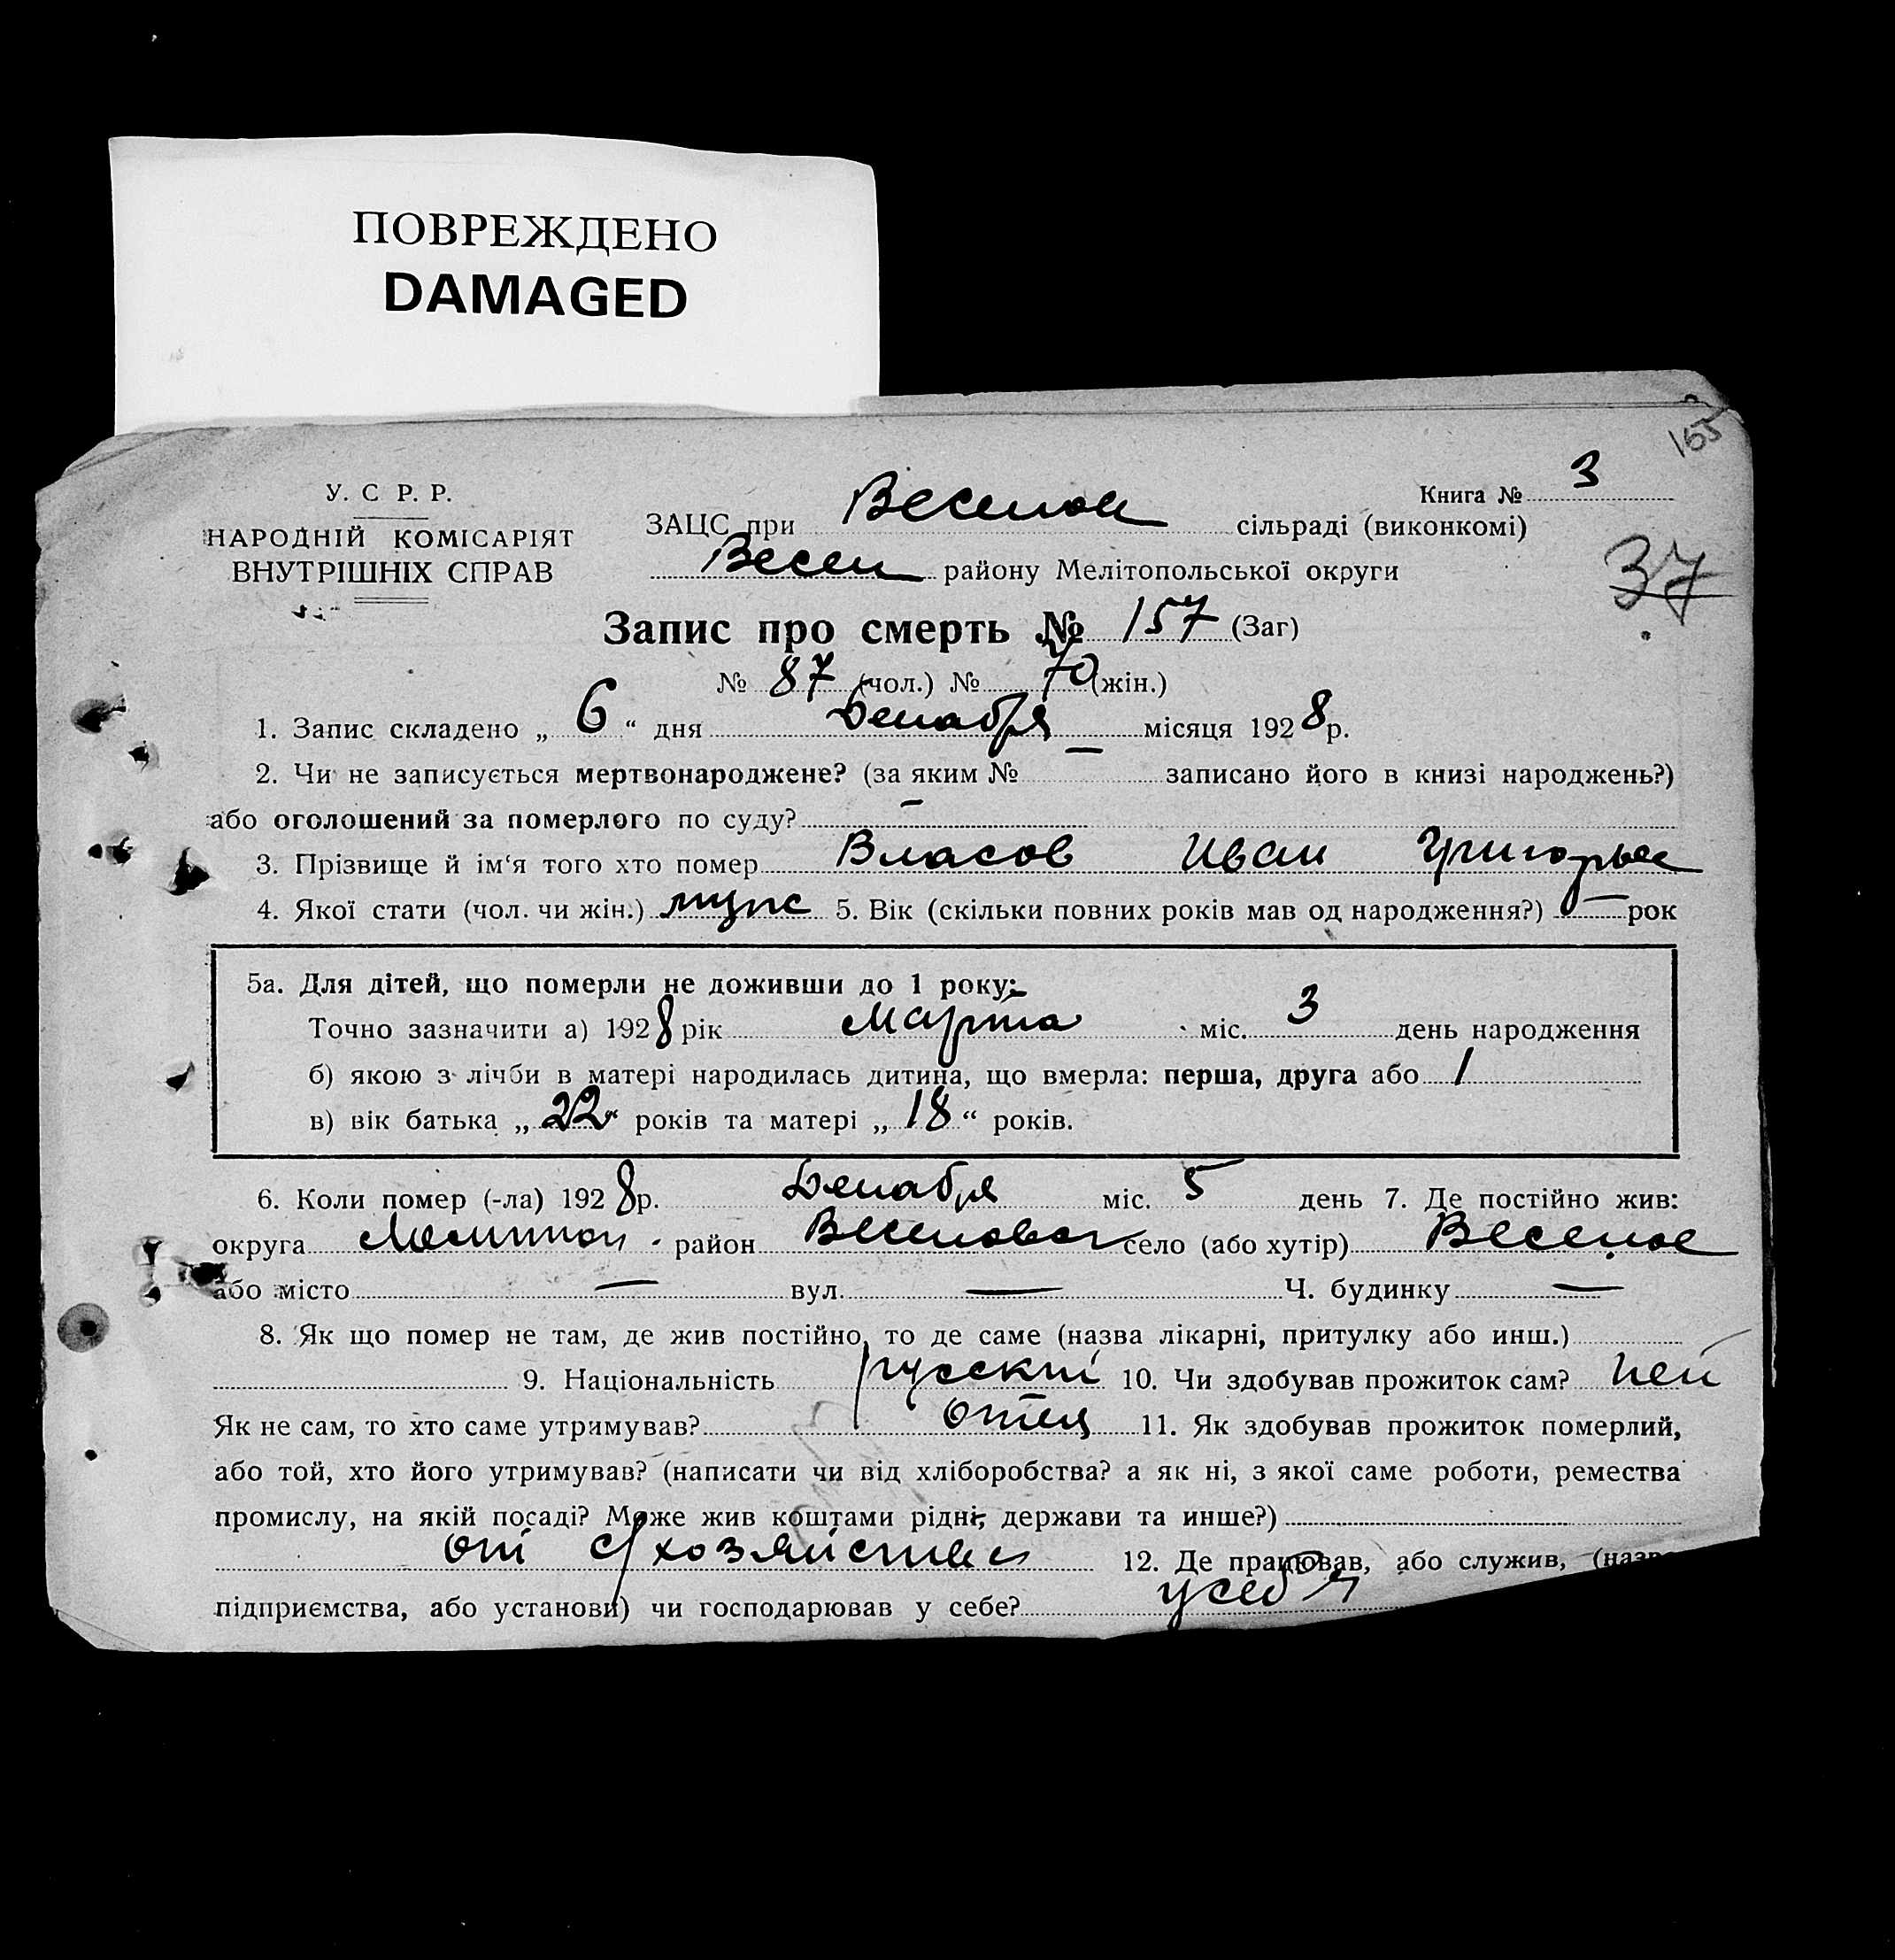 ПОВРЕЖДЕНО
DAMAGED
165
У. С Р. Р.
НАРОДНІЙ КОМІСАРІЯТ
ВНУТРІШНІХ СПРАВ
Книга № 3
ЗАЦС при Веселом сільраді (виконкомі)
Весел району Мелітопольської округи
37
Запис про смерть № 157 (Заг)
№ 87 (чол.) № 70 (жін.)
1. Запис складено „ 6 “ дня Декабря місяця 1928 р.
2. Чи не записується мертвонароджене? (за яким № — записано його в книзі народжень?)
або оголошений за померлого по суду? —
3. Прізвище й ім‘я того хто помер Власов Иван Григорьев
4. Якої стати (чол. чи жін.) мужс 5. Вік (скільки повних років мав од народження?) — рок
5а. Для дітей, що померли не доживши до 1 року:
Точно зазначити а) 1928 рік Марта міс. 3 день народження
б) якою з лічби в матері народилась дитина, що вмерла: перша, друга або 1
в) вік батька „ 22 “ років та матері „ 18 “ років.
6. Коли помер (-ла) 1928 р. Декабря міс. 5 день 7. Де постійно жив:
округа Мелитоп. район Веселовск село (або хутір) Веселое
або місто — вул. — Ч. будинку —
8. Як що помер не там, де жив постійно, то де саме (назва лікарні, притулку або инш.)
9. Національність русский 10. Чи здобував прожиток сам?
Як не сам, то хто саме утримував? отец 11. Як здобував прожиток померлий,
або той, хто його утримував? (написати чи від хліборобства? а як ні, з якої саме роботи, ремества
промислу, на якій посаді? Може жив коштами рідні, держави та инше?)
от с/хозяйства 12. Де працював, або служив, (назва
підприємства, або установи) чи господарював у себе? у себя